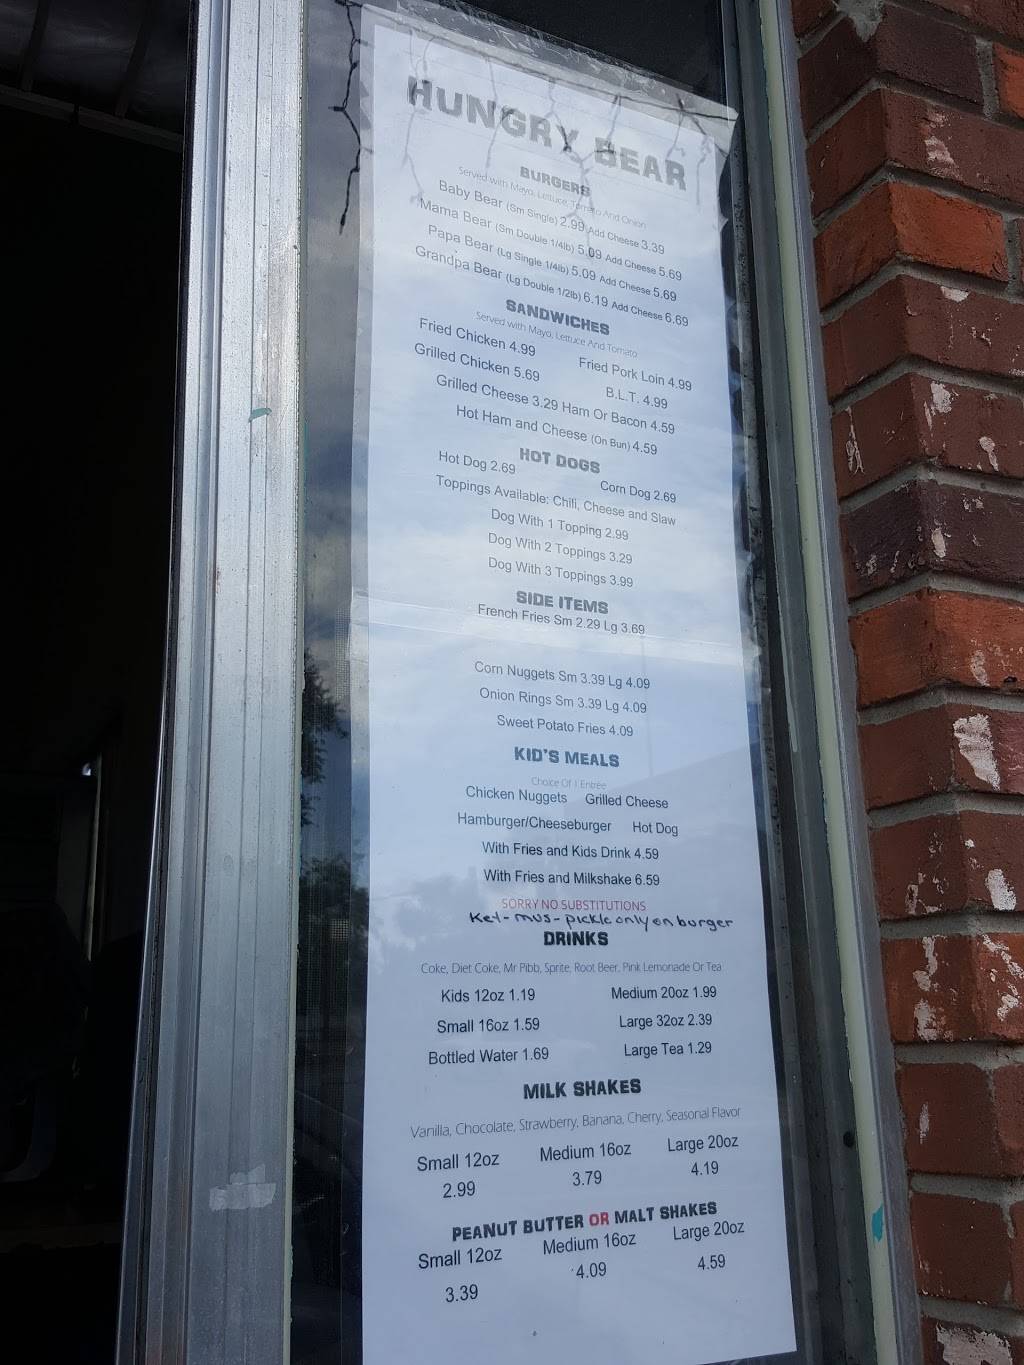 HUNGRY BEAR
BURGERS
Served with Mayo, Lettuce, Tomato And Onion
Baby Bear (Sm Single) 2.99 Add Cheese 3.39
Mama Bear (Sm Double 1/4lb) 5.09 Add Cheese 5.69
Papa Bear (Lg Single 1/4lb) 5.09 Add Cheese 5.69
Grandpa Bear (Lg Double 1/2lb) 6.19 Add Cheese 6.69
SANDWICHES
Served with Mayo, Lettuce And Tomato
Fried Chicken 4.99 Fried Pork Loin 4.99
Grilled Chicken 5.69 B.L.T. 4.99
Grilled Cheese 3.29 Ham Or Bacon 4.59
Hot Ham and Cheese (On Bun) 4.59
HOT DOGS
Hot Dog 2.69 Corn Dog 2.69
Toppings Available: Chili, Cheese and Slaw
Dog With 1 Topping 2.99
Dog With 2 Toppings 3.29
Dog With 3 Toppings 3.99
SIDE ITEMS
French Fries Sm 2.29 Lg 3.69
Corn Nuggets Sm 3.39 Lg 4.09
Onion Rings Sm 3.39 Lg 4.09
Sweet Potato Fries 4.09
KID'S MEALS
Choice Of 1 Entrée
Chicken Nuggets Grilled Cheese
Hamburger/Cheeseburger Hot Dog
With Fries and Kids Drink 4.59
With Fries and Milkshake 6.59
SORRY NO SUBSTITUTIONS
Ket-mus-pickle only on burger
DRINKS
Coke, Diet Coke, Mr Pibb, Sprite, Root Beer, Pink Lemonade Or Tea
Kids 12oz 1.19 Medium 20oz 1.99
Small 16oz 1.59 Large 32oz 2.39
Bottled Water 1.69 Large Tea 1.29
MILK SHAKES
Vanilla, Chocolate, Strawberry, Banana, Cherry, Seasonal Flavor
Small 12oz Medium 16oz Large 20oz
2.99 3.79 4.19
PEANUT BUTTER OR MALT SHAKES
Small 12oz Medium 16oz Large 20oz
3.39 4.09 4.59